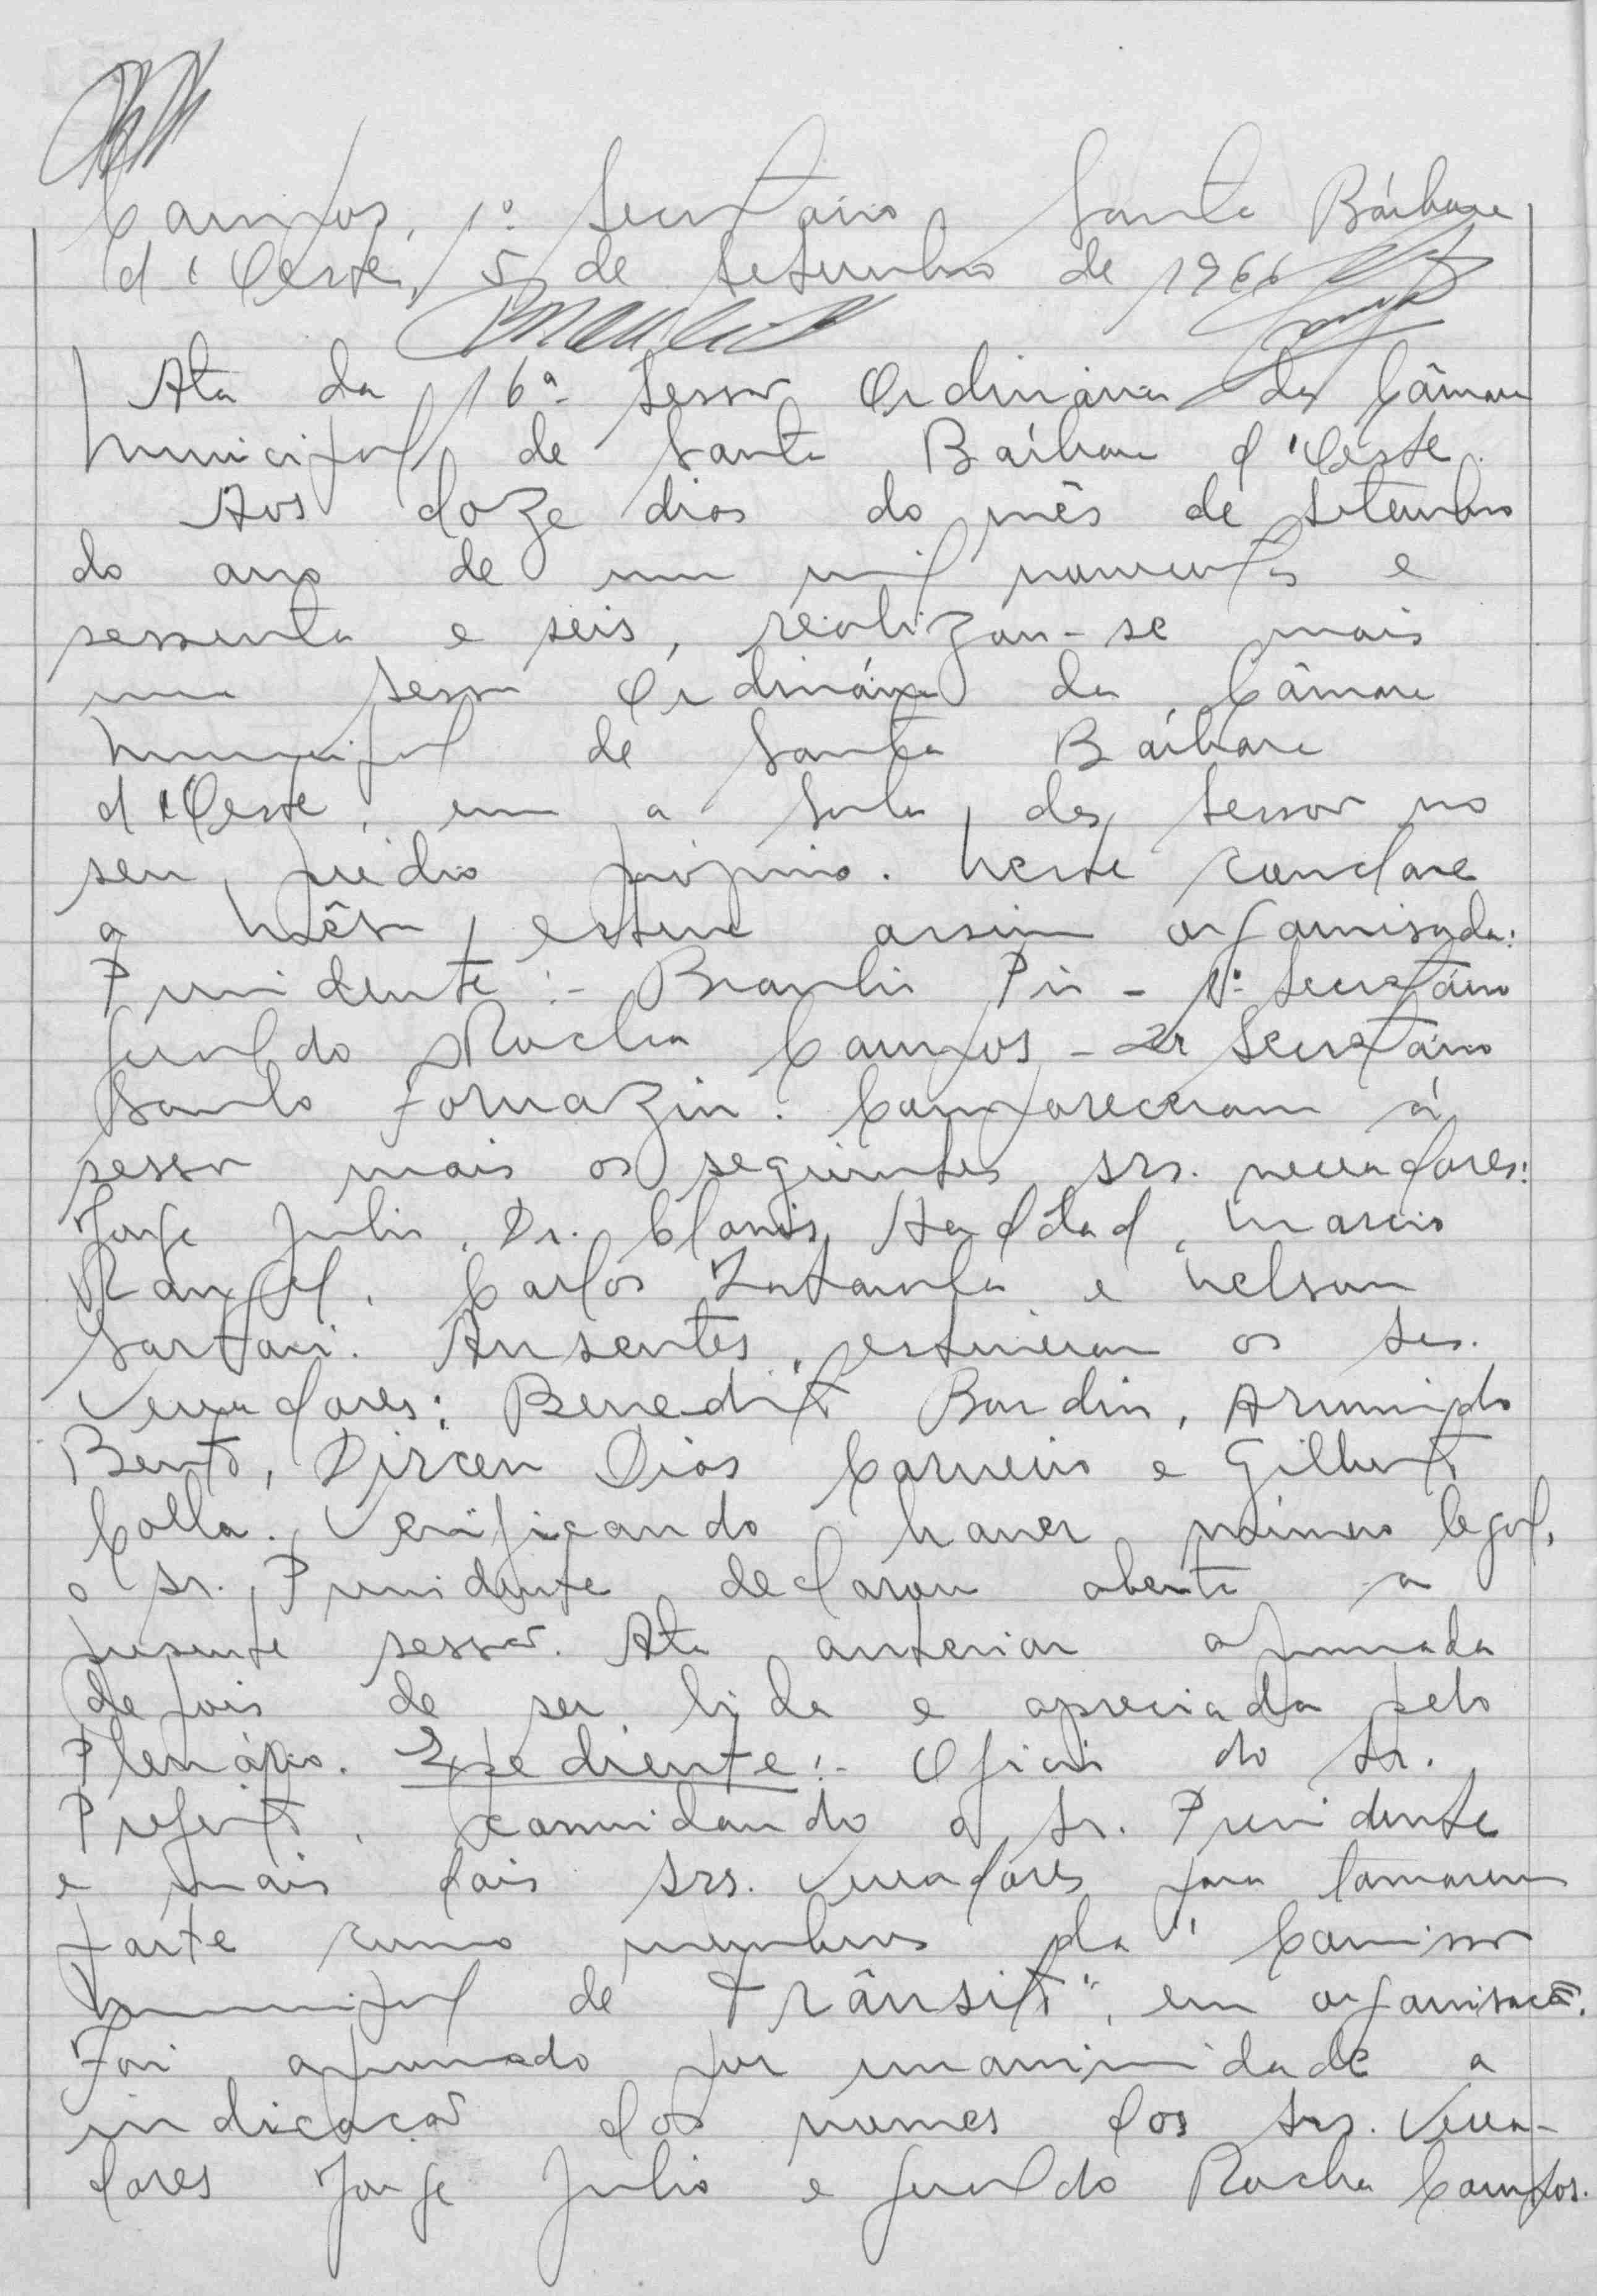 Campos, 1º Secretário, Santa Bárbara
d'Oeste, 5 de Setembro de 1966
Ata da 16ª Sessão Ordinária da Câmara
Municipal de Santa Bárbara d'Oeste.
Aos doze dias do mês de Setembro
do ano de um mil novecentos e
sessenta e seis, realizou-se mais
uma sessão Ordinária da Câmara
Municipal de Santa Bárbara
d'Oeste, em a Sala das Sessões no
seu prédio próprio. Neste conclave
a Mêsa, esteve assim organisada:
Presidente:- Braulio Pio - 1º Secretário
Geraldo Rocha Campos - 2º Secretário
Santo Fornazin. Compareceram á
sessão mais os seguintes srs. vereadores:
Jorge Julio, Dr. Clovis Haddad, Marcio
Rangel, Carlos e Nelson
Sartori. Ausentes, estiveram os Srs.
Vereadores: Benedito Bordin, Armindo
Bento, Dirceu Dias Carneiro e Gilberto
Colla. Verificando haver número legal,
o Sr. Presidente declarou aberta a
presente sessão. Ata anterior aprovada
depois de ser lida e apreciada pelo
Plenário. Expediente:- Oficio do Sr.
Prefeito, convidando o Sr. Presidente
e mais dois Srs. Vereadores para tomarem
parte como membros da "Comissão
Municipal de Trânsito", em organisação.
Foi aprovado por unanimidade a
indicação dos nomes dos Srs. Verea-
dores Jorge Julio e Geraldo Rocha Campos.